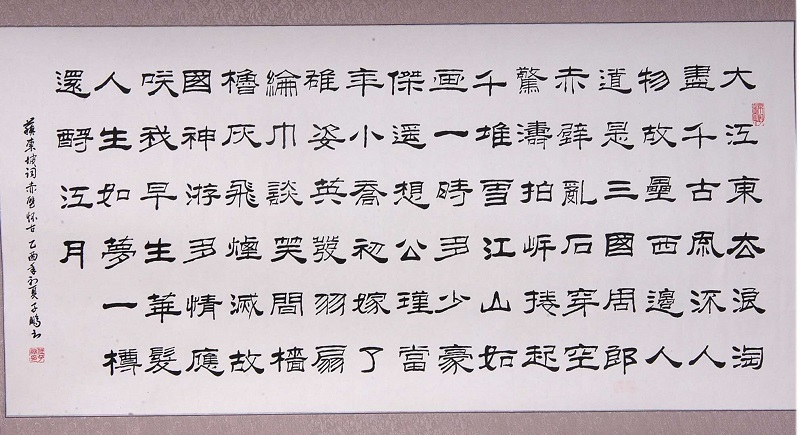 大江東去浪淘
盡千古風流人
物故壘西邊人
道是三國周郎
赤壁亂石穿空
驚濤拍岸捲起
千堆雪江山如
画一時多少豪
傑遥想公瑾當
年小喬初嫁了
雄姿英發羽扇
綸巾談笑間檣
櫓灰飛煙滅故
國神游多情應
咲我早生華髮
人生如夢一樽
還酹江月
蘇東坡词赤壁怀古 乙酉年初夏子鵬书